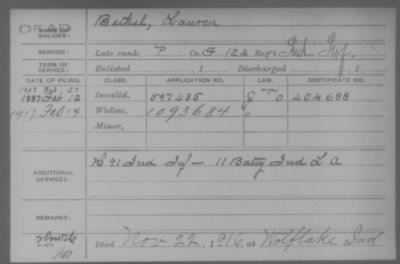 DEAD
NAME OF SOLDIER: Bechtel, Lauren
SERVICE: Late rank, P Co. G 124 Reg't Ind Inf.
TERM OF SERVICE: Enlisted , 1 Discharged , 1
DATE OF FILING. CLASS. APPLICATION NO. LAW. CERTIFICATE NO.
1907 Feb. 27
1887 Feb 12 Invalid, 597435 G O 404688
1917 Feb 14 Widow, 1093684
Minor,
ADDITIONAL SERVICES: B 91 Ind Inf — 11 Batty Ind L A
REMARKS:
Died Nov 22, 1916, at Wolflake Ind